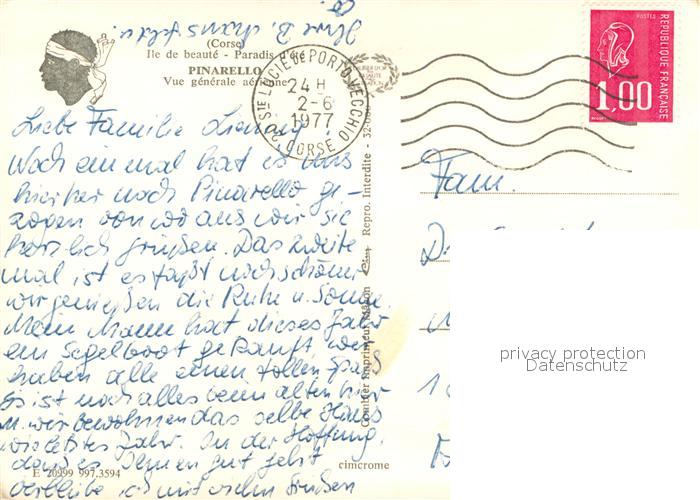 (Corse)
Ile de beauté - Paradis d'été
PINARELLO
Vue générale aérienne
STE LUCIE DE PORTO-VECCHIO
24 H
2-6
1977
2A CORSE
POSTES
REPUBLIQUE FRANÇAISE
1,00
Liebe Familie
Noch einmal hat es uns
hierher nach Pinarello ge-
zogen von wo aus wir sie
herzlich grüßen. Das zweite
mal ist es fast noch schöner
wir genießen die Ruhe u. Sonne.
Mein Mann hat dieses Jahr
ein Segelboot gekauft, wir
haben alle einen tollen Spaß
Es ist noch alles beim alten hier
u. wir bewohnen das selbe Haus
wie letztes Jahr. In der Hoffung,
daß es Ihnen gut geht
verbleibe ich mit vielen Grüßen
Ihre B.
Fam.
Combier Imprimeur Mâcon
Repro. Interdite
E 20999 997.3594
cimcrome
privacy protection
Datenschutz